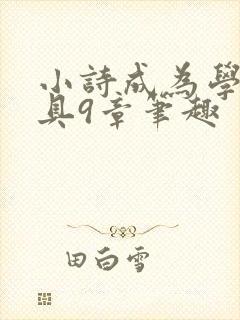 小詩成為學
具9章筆趣
田白雪